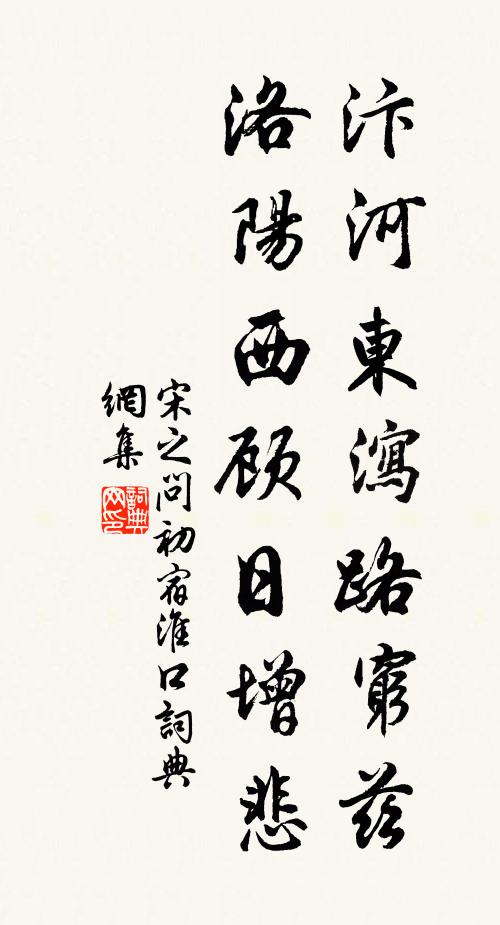 汴河東瀉路窮茲
洛陽西顧日增悲
宋之問初宿淮口詞典
網集
詞典
网印